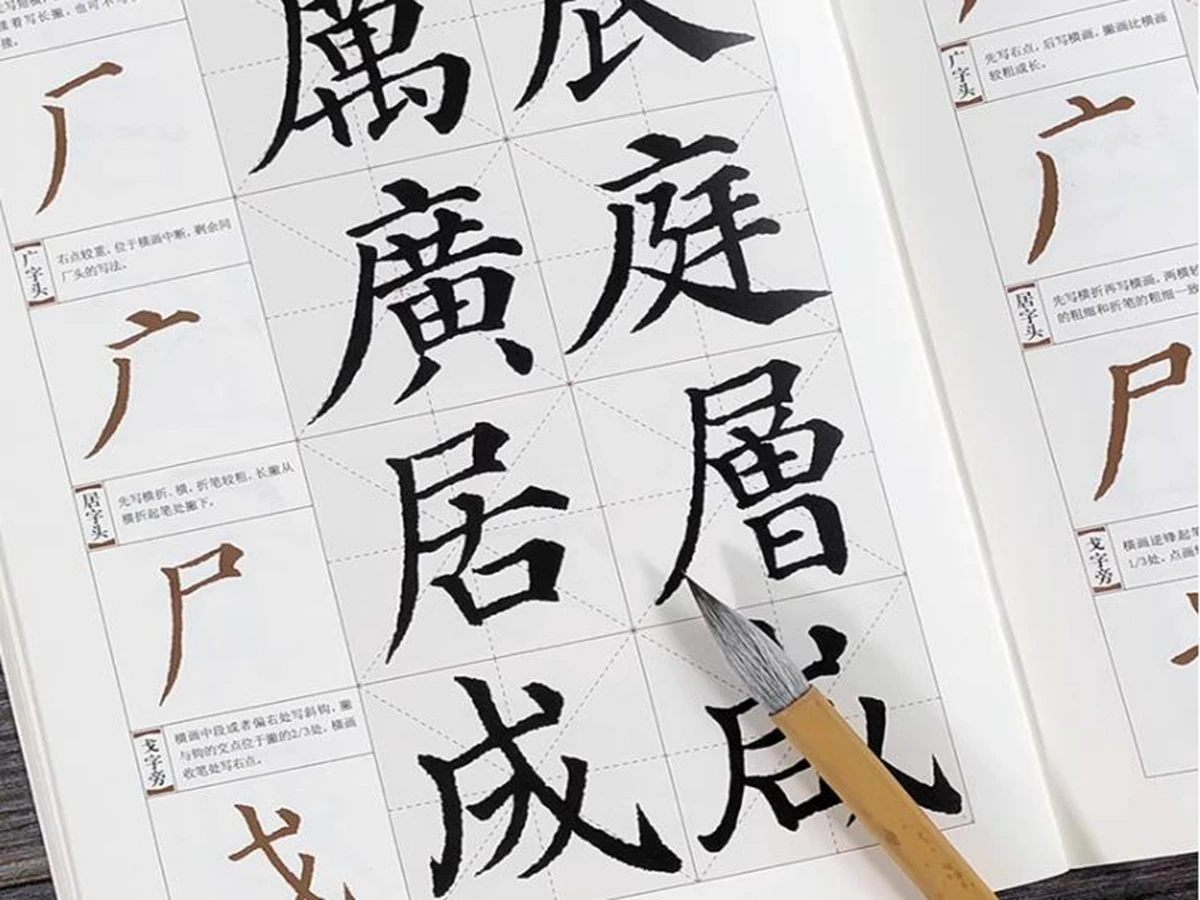 接着写长撇,也可不
接。
厂
厲
辰
【广字头】
右点较重,位于横画中断,剩余同
厂头的写法。
广
廣
庭
【居字头】
先写横折、横,折笔较粗,长撇从
横折起笔处撇下。
尸
居
層
【戈字旁】
横画中段或者偏右处写斜钩,撇
与钩的交点位于撇的2/3处,横画
收笔处写右点。
戈
成
【广字头】
先写右点,后写横画,撇画比横画
较粗或长。
广
【居字头】
先写横折再写横画,两横
的粗细和折笔的粗细一致
尸
【戈字旁】
横画逆锋起
1/3处,点画